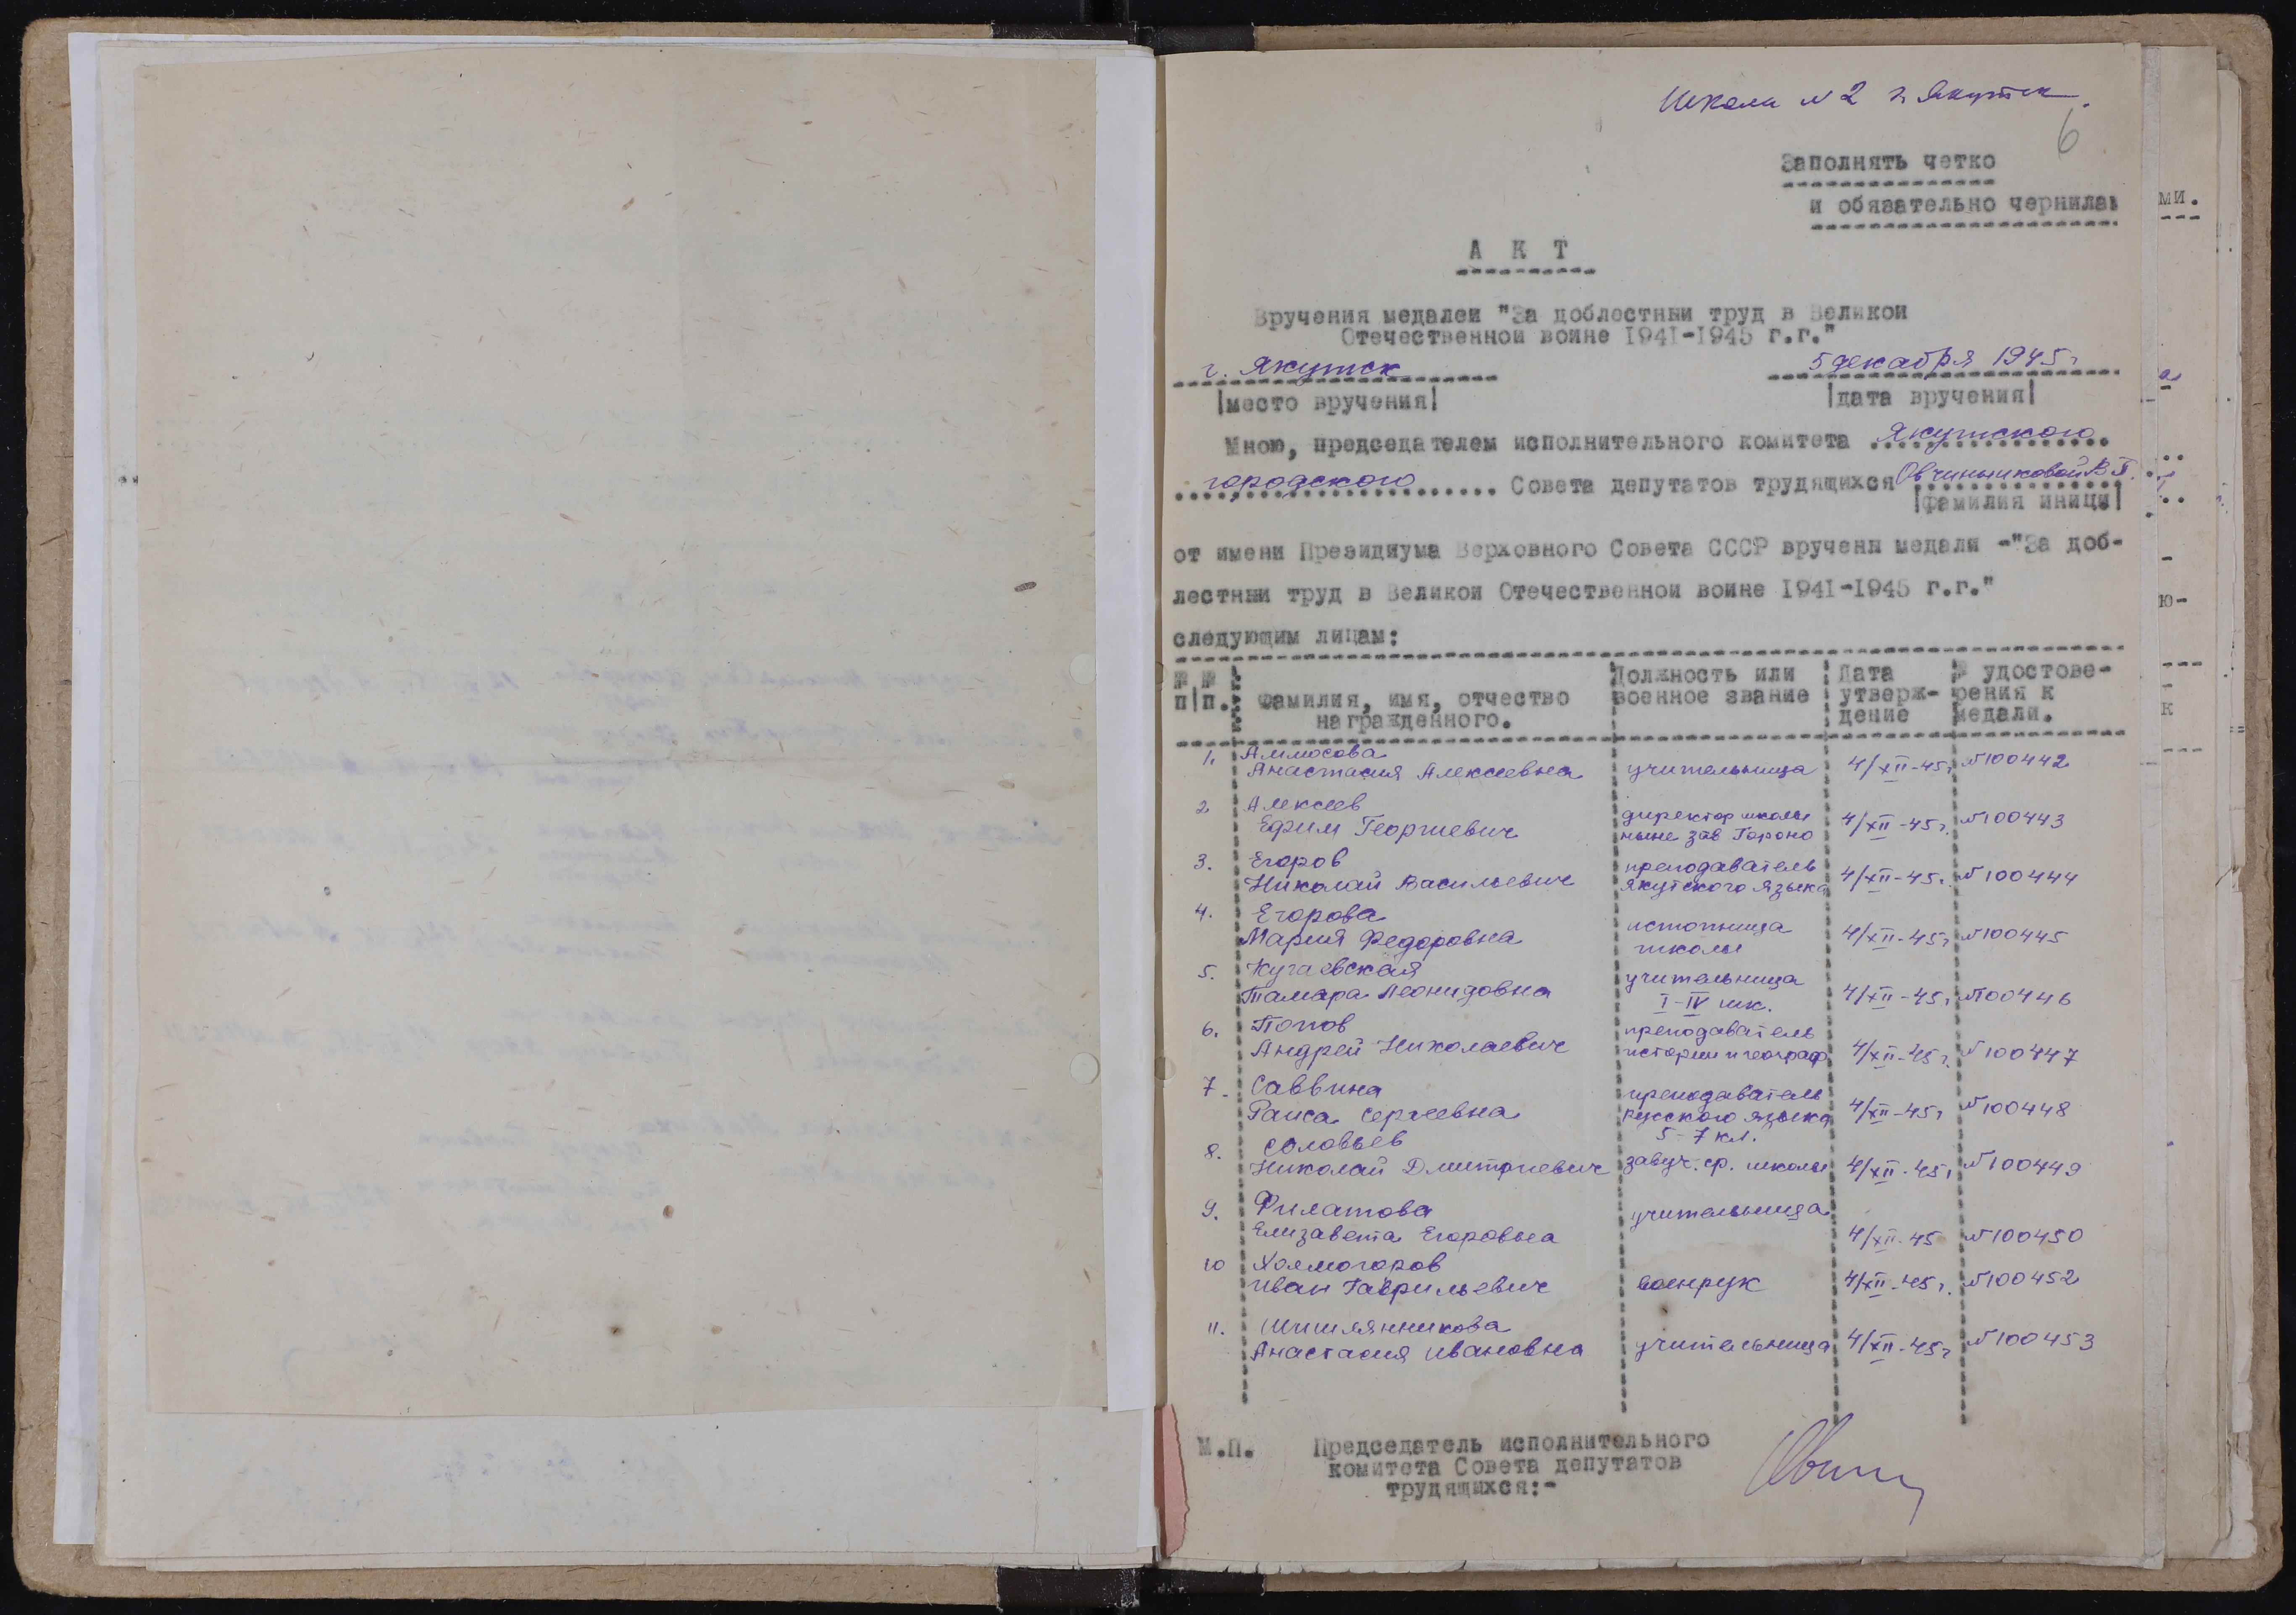 Школа №2 г. Якутск.
6
Заполнять четко
и обязательно чернилам
АКТ
Вручения медалеи "За доблестныи труд в Великои
Отечественнои воине 1941-1945 г.г."
г. Якутск 5 декабря 1945 г
|место вручения| |дата вручения|
Мною, председателем исполнительного комитета Якутского
городского Совета депутатов трудящихся Овчинниковой В.Г.
|фамилия иници|
от имени Президиума Верховного Совета СССР вручены медали -"За доб-
лестныи труд в Великои Отечественнои воине 1941-1945 г.г."
следующим лицам:
№ № Должность или Дата № удостове-
п|п. Фамилия, имя, отчество военное звание утверж- рения к
награжденного. дение медали.
1. Аммосова
Анастасия Алексеевна учительница 4/XII-45г №100442
2. Алексеев директор школы
Ефим Георгиевич ныне зав Гороно 4/XII-45г. №100443
3. Егоров преподаватель
Николай Васильевич якутского языка 4/XII-45г. №100444
4. Егорова истопница
Мария Федоровна школы 4/XII-45г №100445
5. Кугаевская учительница
Тамара Леонидовна I-IV шк. 4/XII-45г №100446
6. Попов преподаватель
Андрей Николаевич истории и географ 4/XII-45г. №100447
7. Саввина преподаватель
Раиса Сергеевна русского языка 4/XII-45г №100448
5-7 кл.
8. Соловьев
Николай Дмитриевич завуч. ср. школы 4/XII-45г №100449
9. Филатова учительница
Елизавета Егоровна 4/XII-45 №100450
10 Холмогоров
Иван Гаврильевич военрук 4/XII-45г. №100452
11. Шишлянникова
Анастасия Ивановна учительница 4/XII-45г №100453
М.П. Председатель исполнительного
комитета Совета депутатов
трудящихся:-